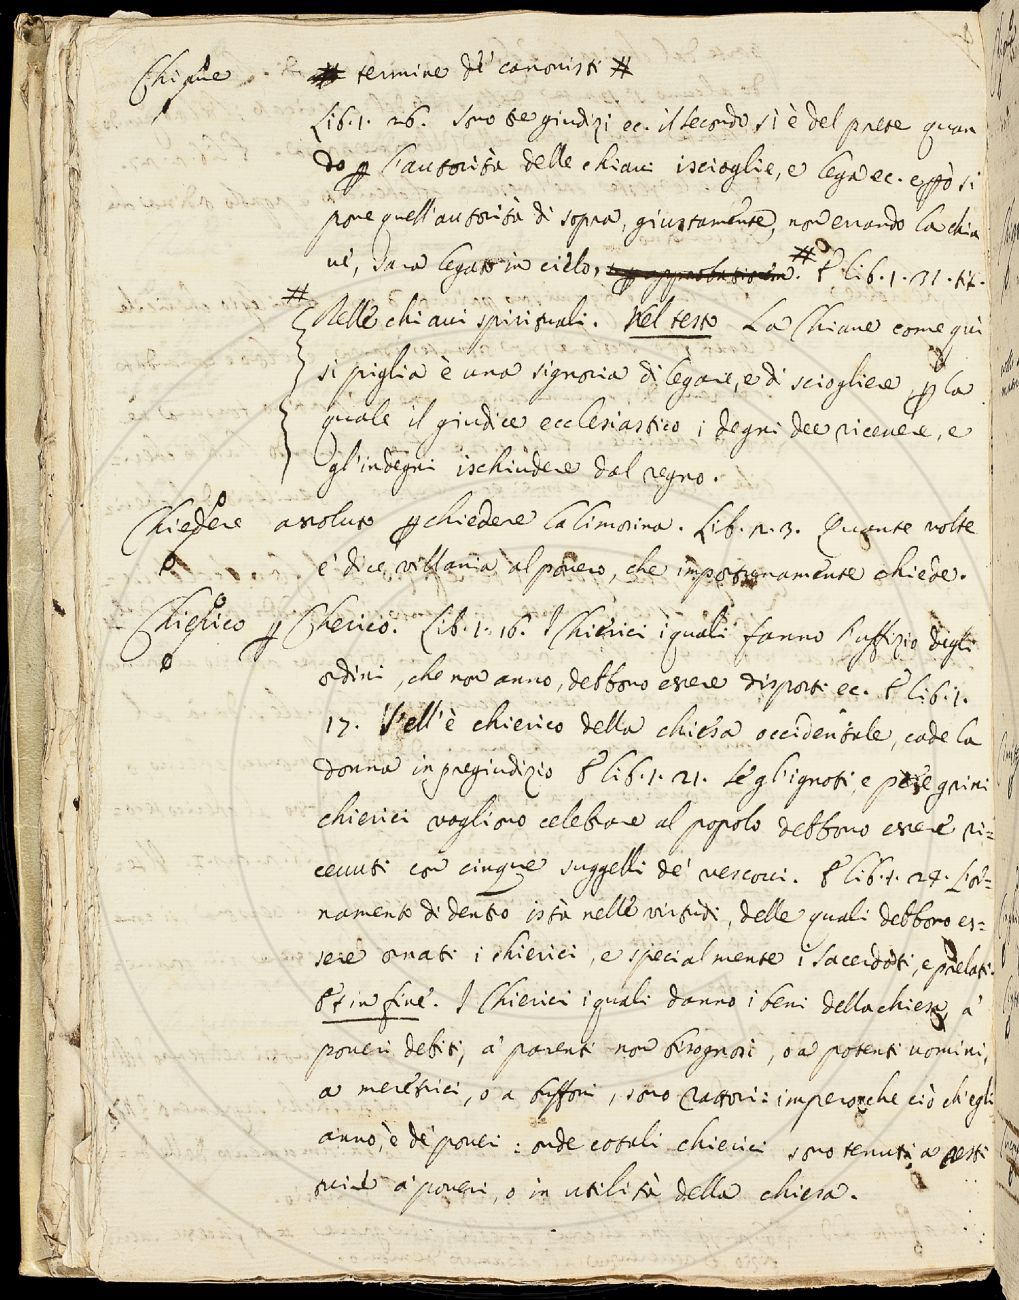 Chiave # termine de' canonisti #
Lib. 1. 26. Sono tre giudizj ec. il secondo si è del prete quan
do p l'autorità delle chiavi iscioglie, e lega ec. e però si
pone quell'autorità di sopra, giustamente, non errando la chia
ve, sarà legato in cielo. # E lib. 1. 31. tit.
# Delle chiavi spirituali. Nel testo La Chiave come quì
si piglia è una signoria di legare, e di sciogliere, p la
quale il giudice ecclesiastico i degni dee ricevere, e
gl'indegni ischiudere dal regno.
Chiedere assoluto p chiedere la limosina. Lib. 2. 3. Quante volte
è dice villania al povero, che importunamente chiede.
Chierico p Cherico. Lib. 1. 16. I Chierici i quali fanno l'uffizio degli
ordini, che non anno, debbono essere disposti ec. E lib. 1.
17. S'ell'è chierico della chiesa occidentale, cade la
donna in pregiudizio E lib. 1. 21. Se gl'ignoti, e peregrini
chierici vogliono celebrare al popolo debbono essere ri=
cevuti con cinque suggelli de' vescovi. E lib. 1. 24. L'or=
namento di dentro istà nelle virtudi, delle quali debbono es=
sere ornati i chierici, e specialmente i Sacerdoti, e prelati.
E in fine. I Chierici i quali danno i beni della chiesa, a'
poveri debiti, a' parenti non bisognosi, o a potenti uomini,
a meretrici, o a buffoni, sono rattori: imperocche ciò ch'egli
anno, è de' poveri: onde cotali chierici sono tenuti a resti
tuire a' poveri, o in utilità della chiesa.